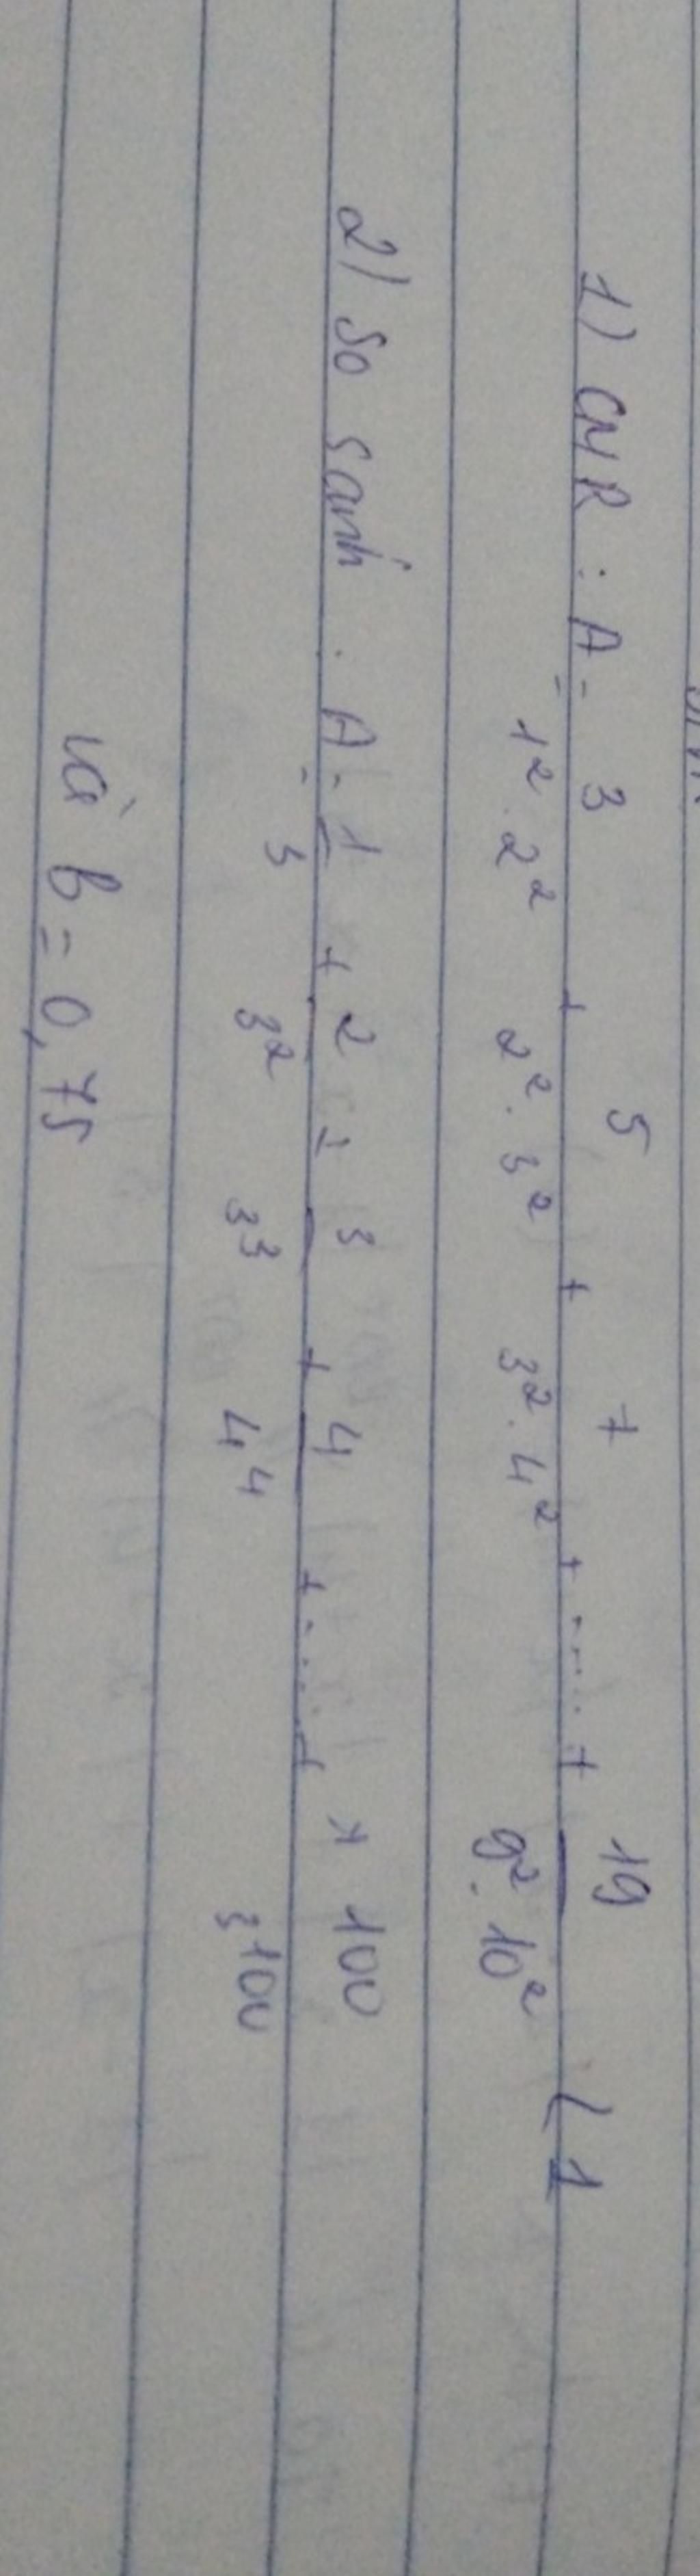 1) CMR : A = 3/1². 2² + 5/2². 3² + 7/3². 4² + .... + 19/9². 10² < 1
2) So sánh : A = 1/3 + 2/3² + 3/3³ + 4/4⁴ + .... + 100/3¹⁰⁰
và b = 0,75